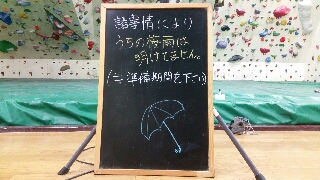 諸事情により
うちの梅雨は
明けてません。
(=準備期間を下さい)